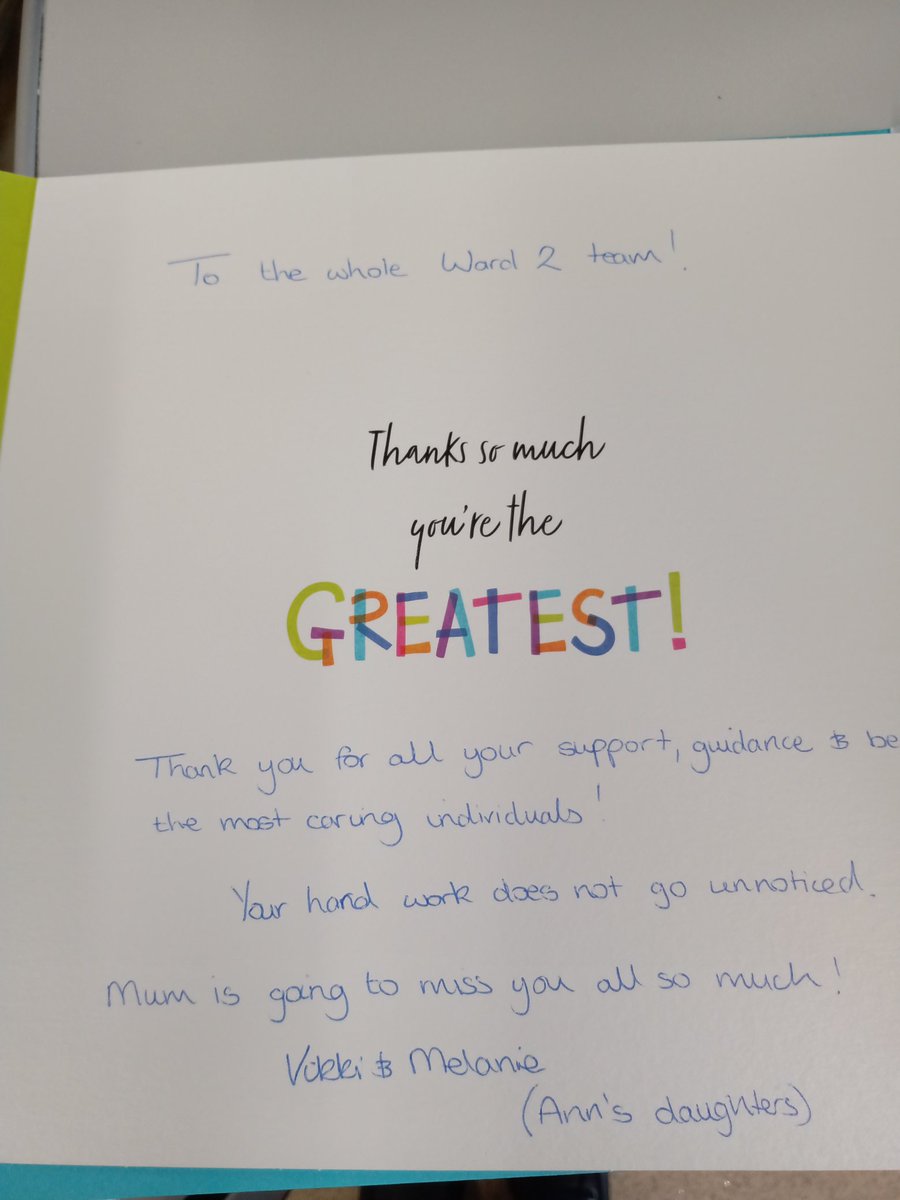 To the whole Ward 2 team!
Thanks so much
you're the
GREATEST!
Thank you for all your support, guidance & be
the most caring individuals!
Your hard work does not go unnoticed.
Mum is going to miss you all so much!
Vikki & Melanie
(Ann's daughters)